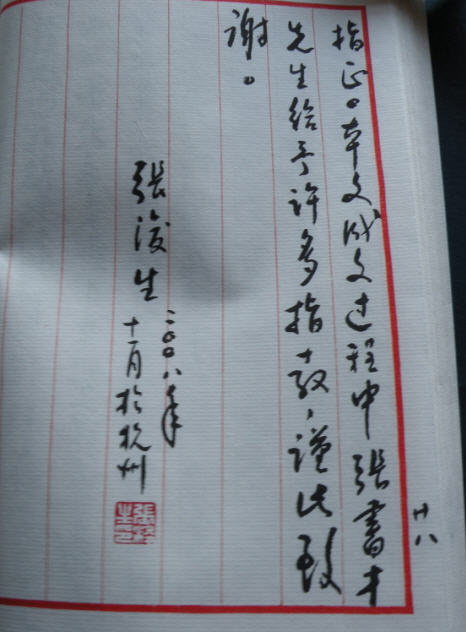 廿八
指正。本文成文过程中張書才
先生給予许多指教,谨此致
谢。
張浚生
二〇〇八年
十一月於杭州